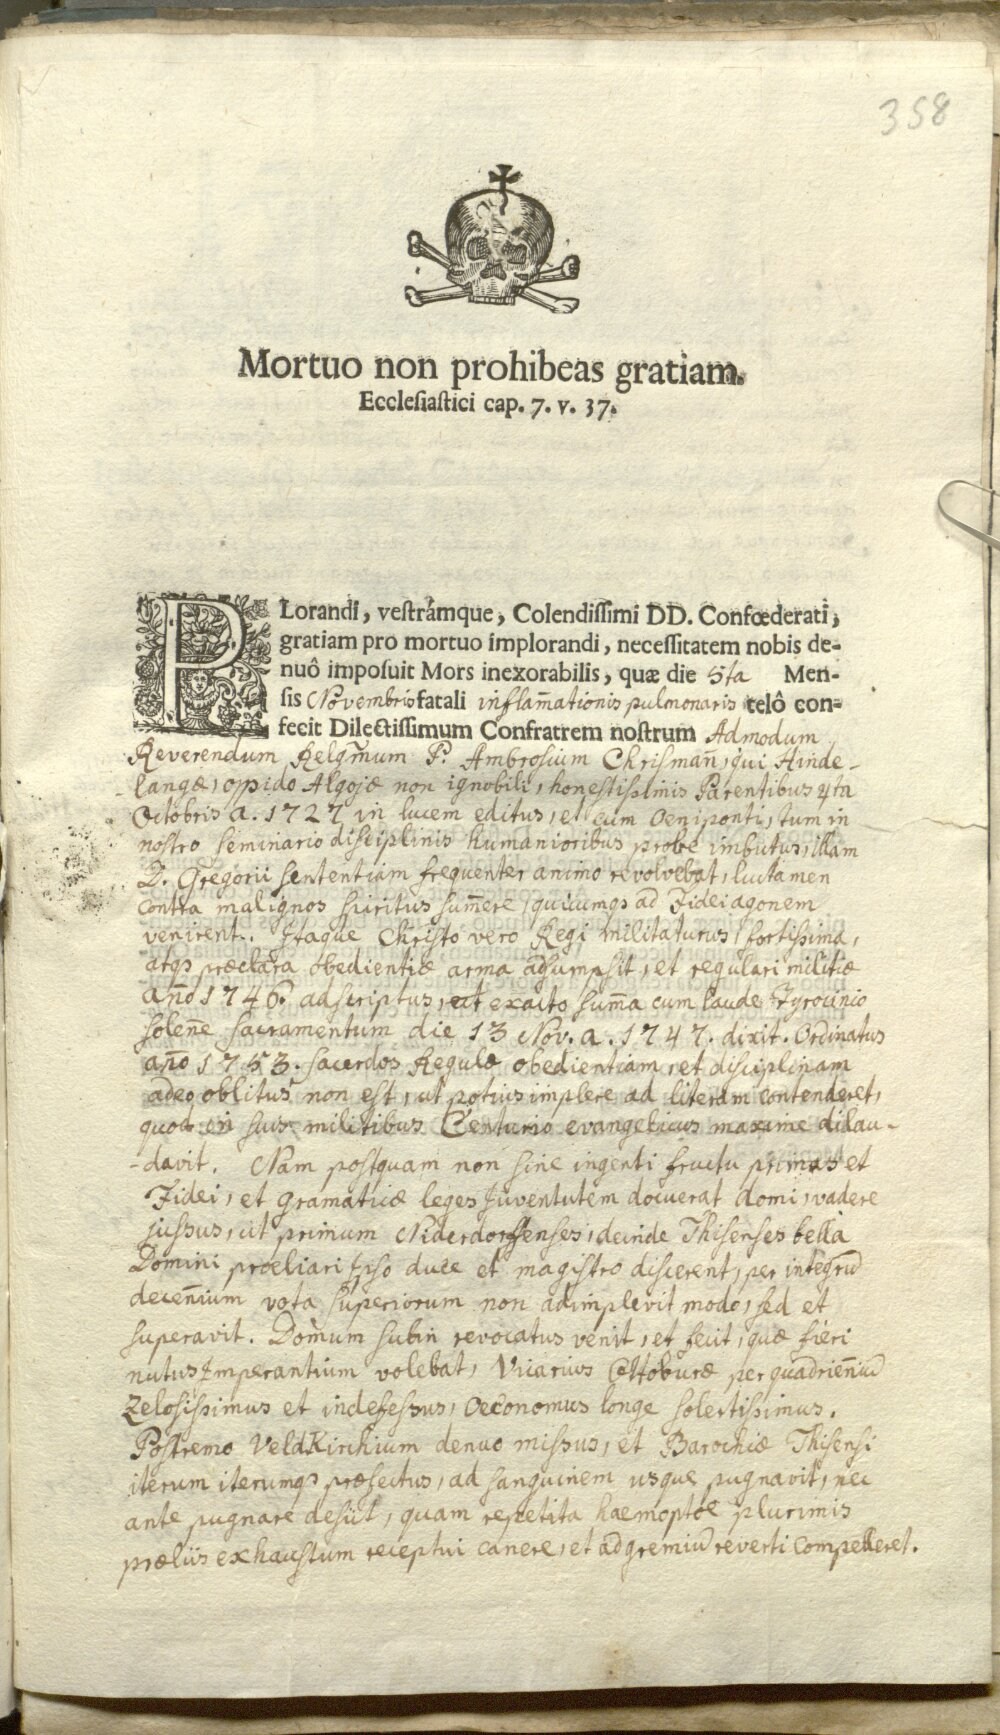 358
Mortuo non prohibeas gratiam.
Ecclesiastici cap. 7. v. 37.
PLorandi, vestrámque, Colendissimi DD. Confœderati,
gratiam pro mortuo implorandi, necessitatem nobis de-
nuô imposuit Mors inexorabilis, quæ die 5ta Men-
sis Novembris fatali inflam̄ationis pulmonaris telô con-
fecit Dilectissimum Confratrem nostrum Admodum
Reverendum Relgm̄um P. Ambrosium Chrisman̄, qui Hinde-
-langæ, oppido Algojæ non ignobili, honestissimis Parentibus 4ta
Octobris a. 1727 in lucem editus, et cum Oeniponti, tum in
nostro seminario disciplinis humanioribus probe imbutus, illam
D. Gregorii sententiam frequenter animo revolvebat, luctamen
contra malignos spiritus sum̄ere, quicumqs ad Fidei agonem
venirent. Itaque Christo vero Regi militaturus, fortissima,
atqs præclara obedientiæ arma adsumpsit, et regulari militiæ
an̄o 1746. adscriptus, et exacto sum̄a cum laude Tyrocinio
solen̄e sacramentum die 13 Nov. a. 1747. dixit. Ordinatus
an̄o 1753. sacerdos Regulæ obedientiam, et disciplinam
adeo oblitus non est, ut potius implere ad literam contenderet,
quod in suis militibus Centurio evangelicus maxime dilau-
-davit. Nam postquam non sine ingenti fructu primas et
Fidei, et gramaticæ leges Juventutem docuerat domi, vadere
jussus, ut primum Niderdorffenses, deinde Thisenses bella
Domini prœliari Ipso duce et magistro discerent, per integrū
decen̄ium vota superiorum non adimplevit modo, sed et
superavit. Domum subin revocatus venit, et fecit, quæ fieri
nutus Imperantium volebat, Vicarius Ottoburæ per quadrien̄iū
zelosissimus et indefessus, Oeconomus longe solertissimus.
Postremo Veldkirchium denuo missus, et Barochiæ Thisensi
iterum iterumqs præfectus, ad sanguinem usque pugnavit, nec
ante pugnare desiit, quam repetita haemoptöe plurimis
præliis exhaustum receptui canere, et ad gremiū reverti compelleret.